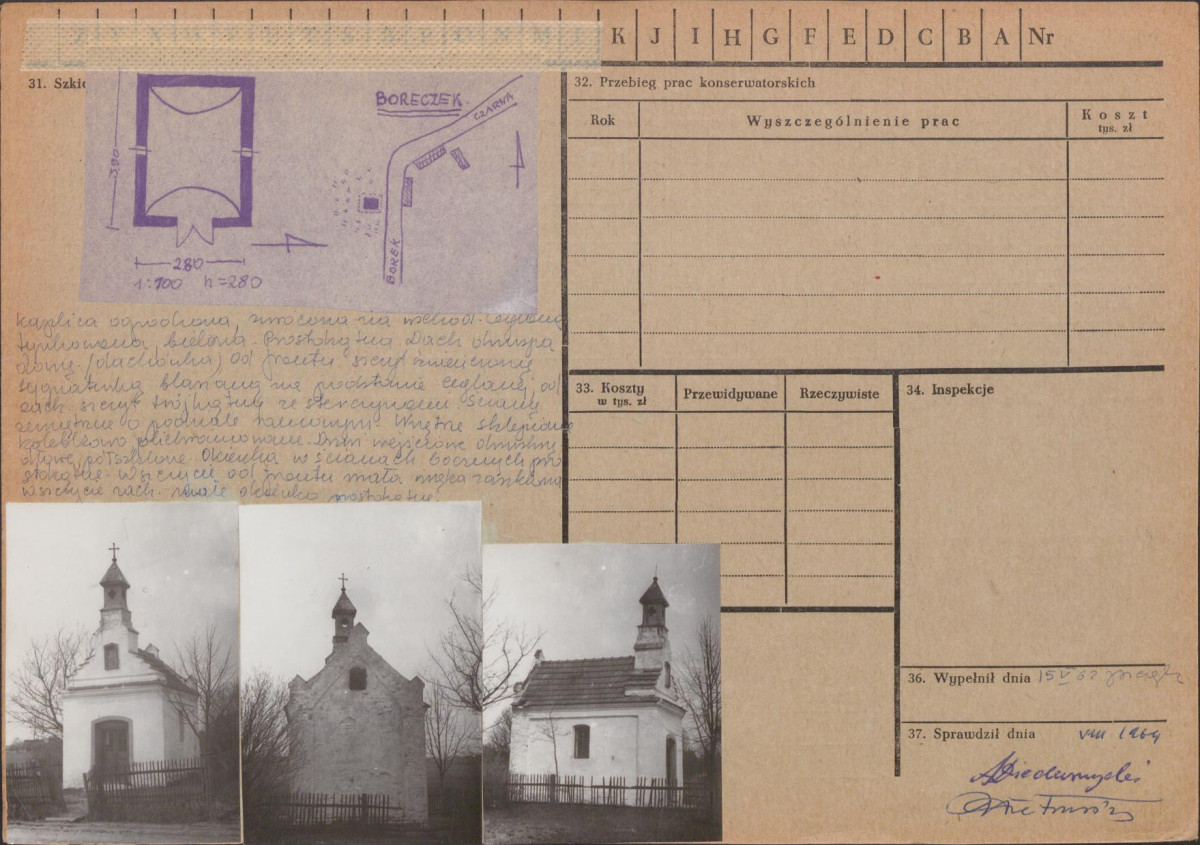 K J I H G F E D C B A Nr
31. Szki
BORECZEK
CZARNA
BOREK
390
280
1:100 h=280
Kaplica ogrodzona, zwrócona na wschód. Ceglana
tynkowana, bielona. Prostokątna. Dach dwuspa
dowy (dachówka) Od frontu szczyt zwieńczony
sygnaturką blaszaną na podstawie ceglanej, od
zach. szczyt trójkątny ze sterczynami. Ściany
zewnętrzne o podziale ramowym. Wnętrze sklepione
kolebkowo Drzwi wejściowe dwuskrzy
dłowe, półszklone. Okienka w ścianach bocznych pro
stokątne. W szczycie od frontu mała nisza zamknięta
w szczycie zach. małe okienko prostokątne.
32. Przebieg prac konserwatorskich
Rok
Wyszczególnienie prac
Koszt
tys. zł
33. Koszty
w tys. zł
Przewidywane
Rzeczywiste
34. Inspekcje
36. Wypełnił dnia 15 V 62
37. Sprawdził dnia VIII 1964